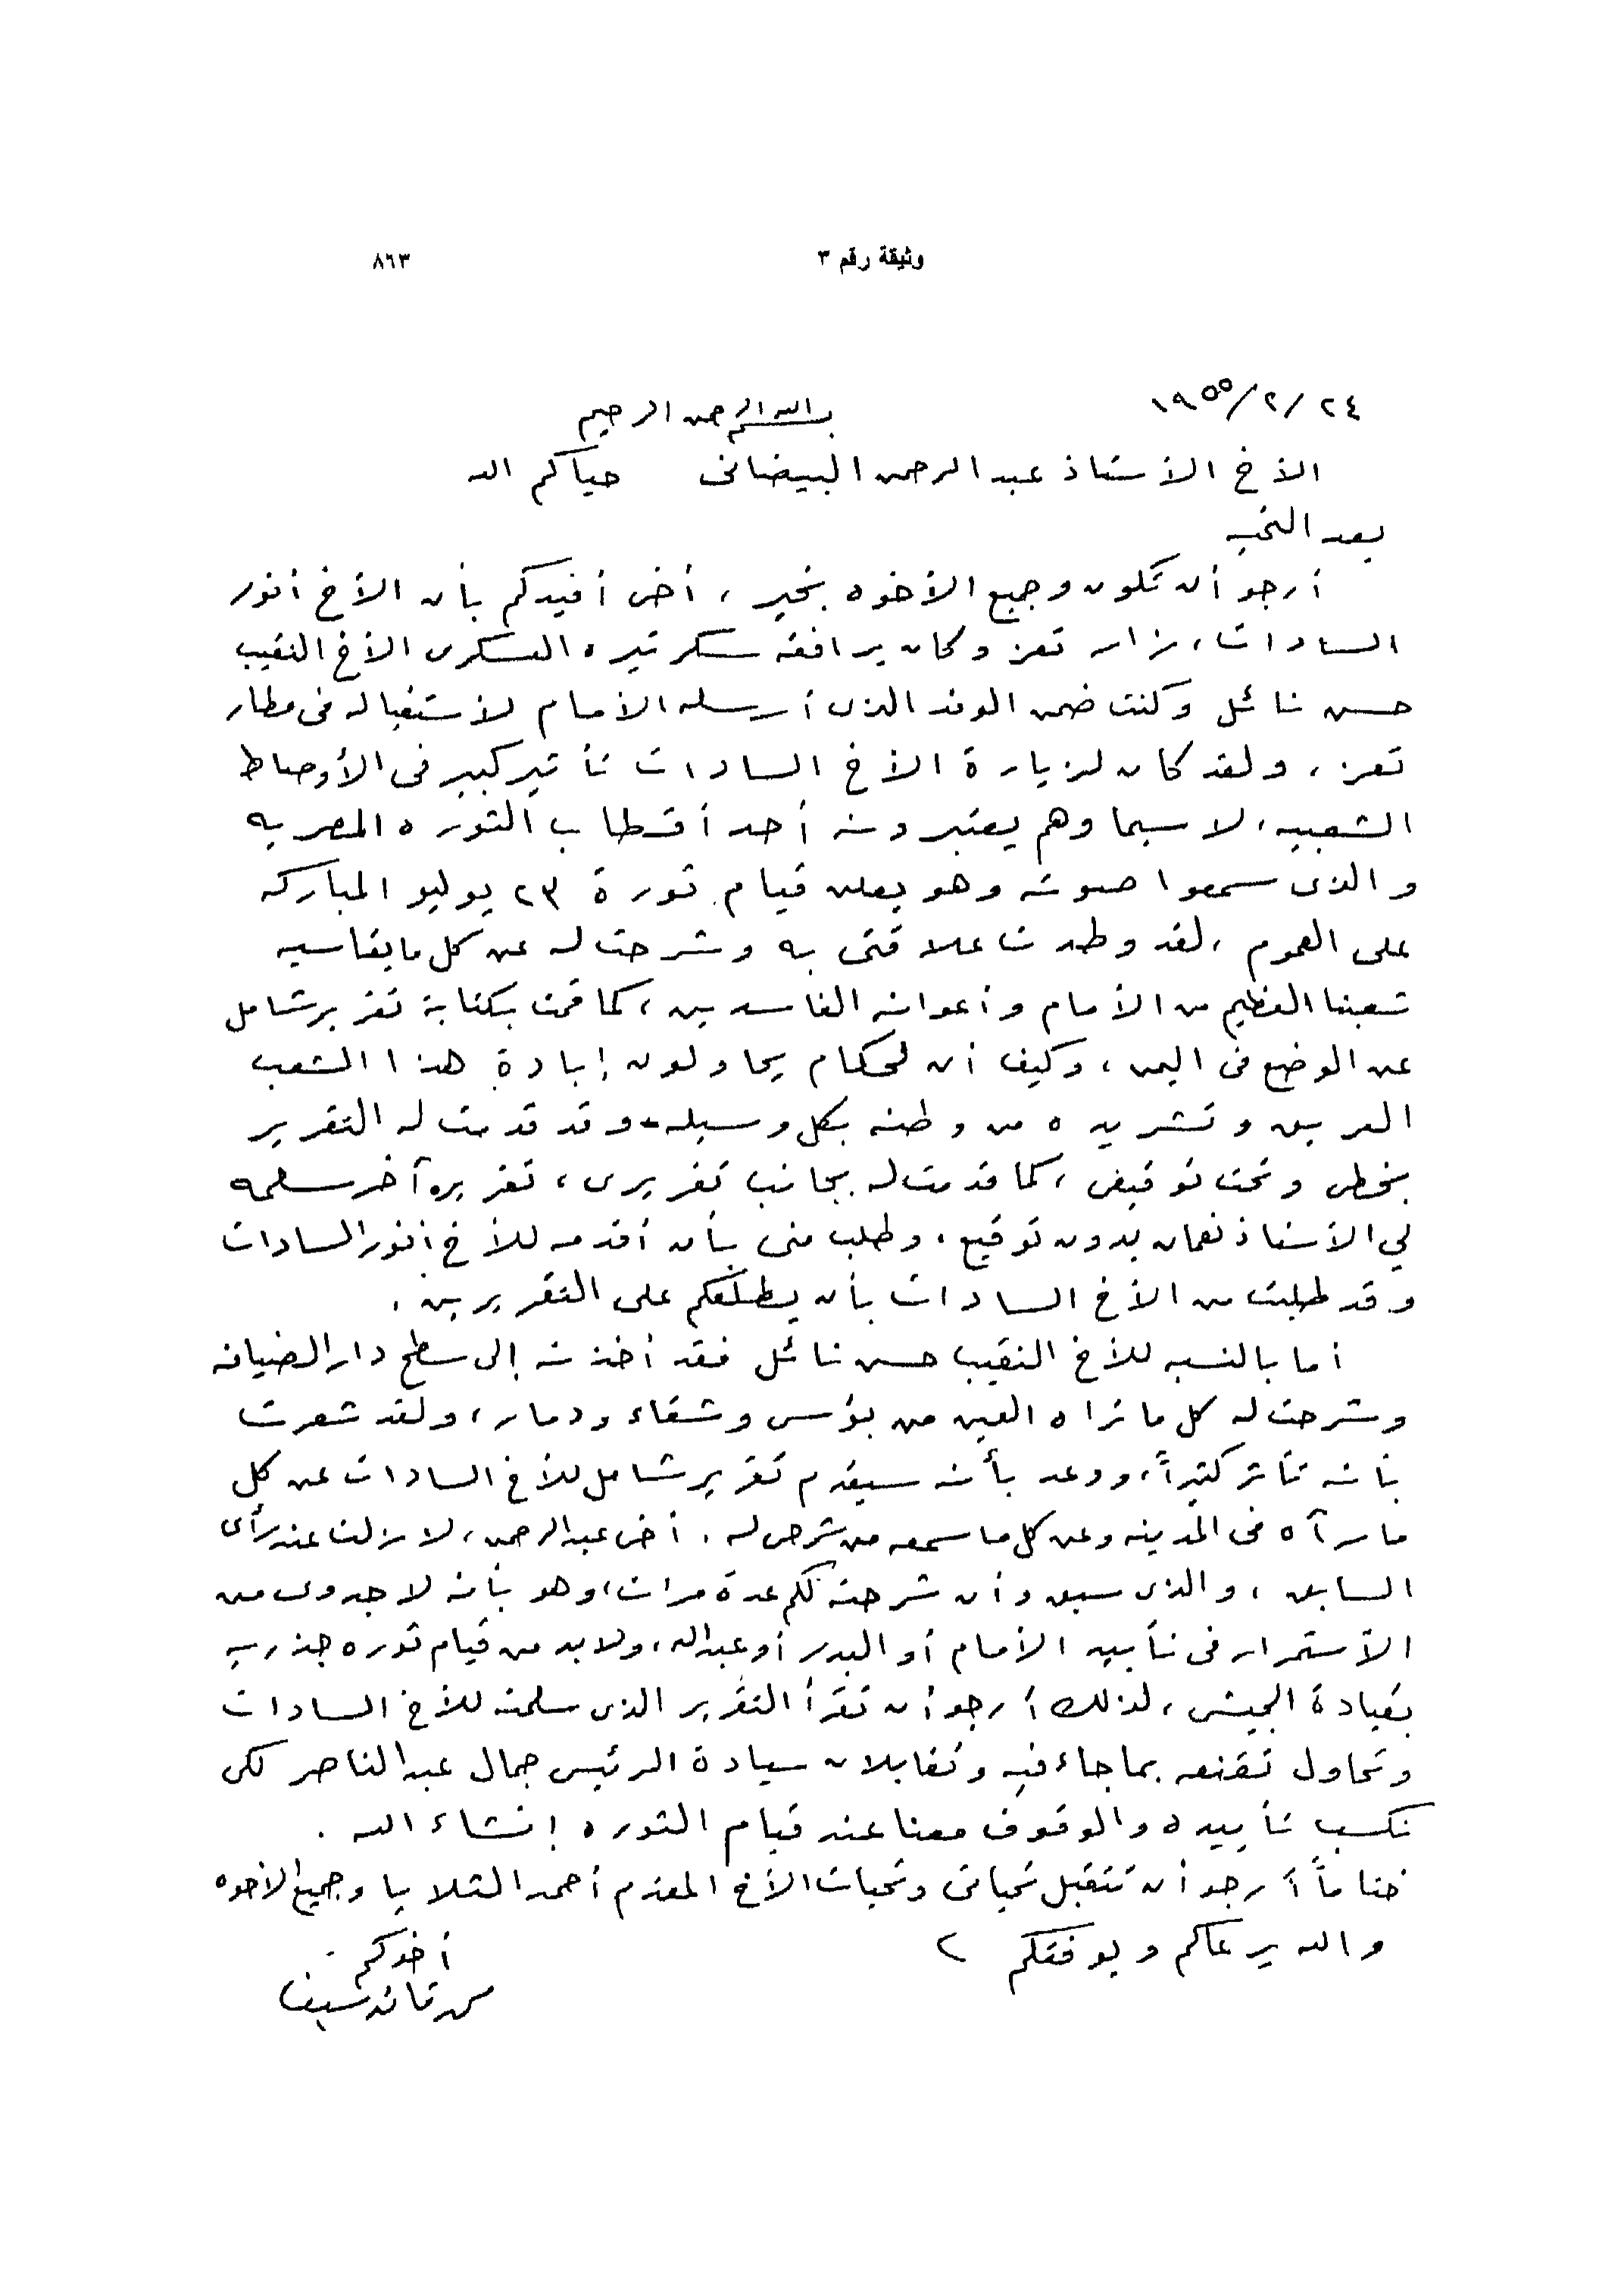 وثيقة رقم ٣ ٨٦٣
٢٤/٢/١٩٥٥ بسم الله الرحمن الرحيم
الأخ الأستاذ عبد الرحمن البيضانى حياكم الله
بعد التحيه
أرجو أن تكون وجميع الأخوه بخير ، أخى أفيدكم بأن الأخ أنور
السادات ، زار تعز وكان يرافقه سكرتيره العسكرى الأخ النقيب
حسن نائل وكنت ضمن الوفد الذى أرسله الأمام لأستقباله فى مطار
تعز ، ولقد كان لزيارة الأخ السادات تأثير كبير فى الأوصاط
الشعبيه ، لا سيما وهم يعتبرونه أحد أقطاب الثوره المصريه
والذى سمعوا صوته وهو يعلن قيام ثورة ٢٣ يوليو المباركه
على العموم ، لقد وطدت علاقتى به وشرحت له عن كل ما يقاسيه
شعبنا العظيم من الأمام وأعوانه الفاسدين ، كما قمت بكتابة تقرير شامل
عن الوضع فى اليمن ، وكيف أن لحكام يحاولون إبادة هذا الشعب
العريق وتشريده من وطنه بكل وسيله - وقد قدمت له التقرير
بخطى وتحت توقيعى ، كما قدمت له بجانب تقريرى ، تقريره آخر سلمه
لي الأستاذ نعمان بدون توقيع ، وطلب منى بأن أقدمه للأخ أنور السادات
وقد طلبت من الأخ السادات بأن يطلعكم على التقريرين .
أما بالنسبه للأخ النقيب حسن نائل فقد أخذته إلى سطح دار الضيافه
وشرحت له كل ما تراه العين من بؤس وشقاء ودمار ، ولقد شعرت
بأنه تأثر كثيراً ، ووعد بأنه سيقدم تقرير شامل للأخ السادات عن كل
ما رآه فى المدينه وعن كل ما سمعه من شرحى له . أخى عبد الرحمن ، لا زلت عند رأى
السابق ، والذى سبق وأن شرحته لكم عدة مرات ، وهو بأنه لا جدوى من
الأستمرار فى تأييد الأمام أو البدر أو عبد الله ، ولا بد من قيام ثوره جذريه
بقيادة الجيش ، لذلك أرجو أن تقرأ التقرير الذى سلمته للأخ السادات
وتحاول تقنعه بما جاء فيه وتقابلان سيادة الرئيس جمال عبد الناصر لكى
نكسب تأييده والوقوف معنا عند قيام الثوره إنشاء الله .
ختاماً أرجو أن تتقبل تحياتى وتحيات الأخ المقدم أحمد الثلايا وجميع الأخوه
والله يرعاكم ويوفقكم
أخوكم
قائد سيف